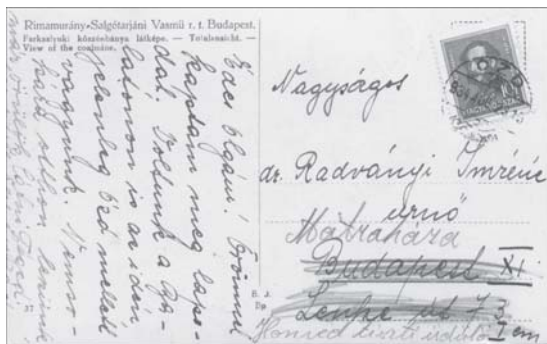 Rimamurány-Salgótarjáni Vasmű r. t. Budapest.
Farkaslyuki kőszénbánya látképe. — Totalansicht. —
View of the coalmine.
Édes Olgám! Örömmel
kaptam meg lapo-
dat. Voltunk a Ba-
latonon is az idén
jelenleg Ózd mellett
vagyunk. Nemso-
kára otthon leszünk
már
Nagyságos
dr. Radványi Imréné
úrnő
Mátraháza
Budapest XI
Lenke út 73
Honvéd tiszti üdülő I em
ÓZD
10